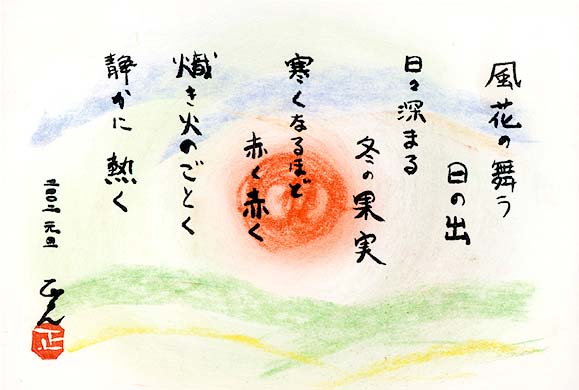 風花の舞う
日の出
日々深まる
冬の果実
寒くなるほど
赤く赤く
熾き火のごとく
静かに 熱く
二〇〇二 元旦
正